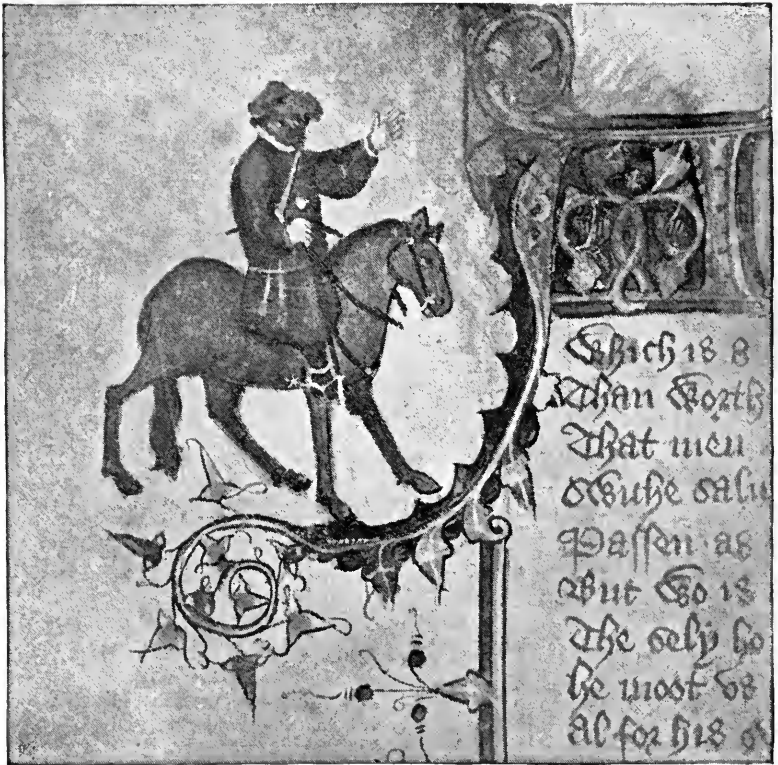 Which is a
Than worth
That men
Swiche salu
Passen as
But wo is
The sely ho
he moot vs
al for his o